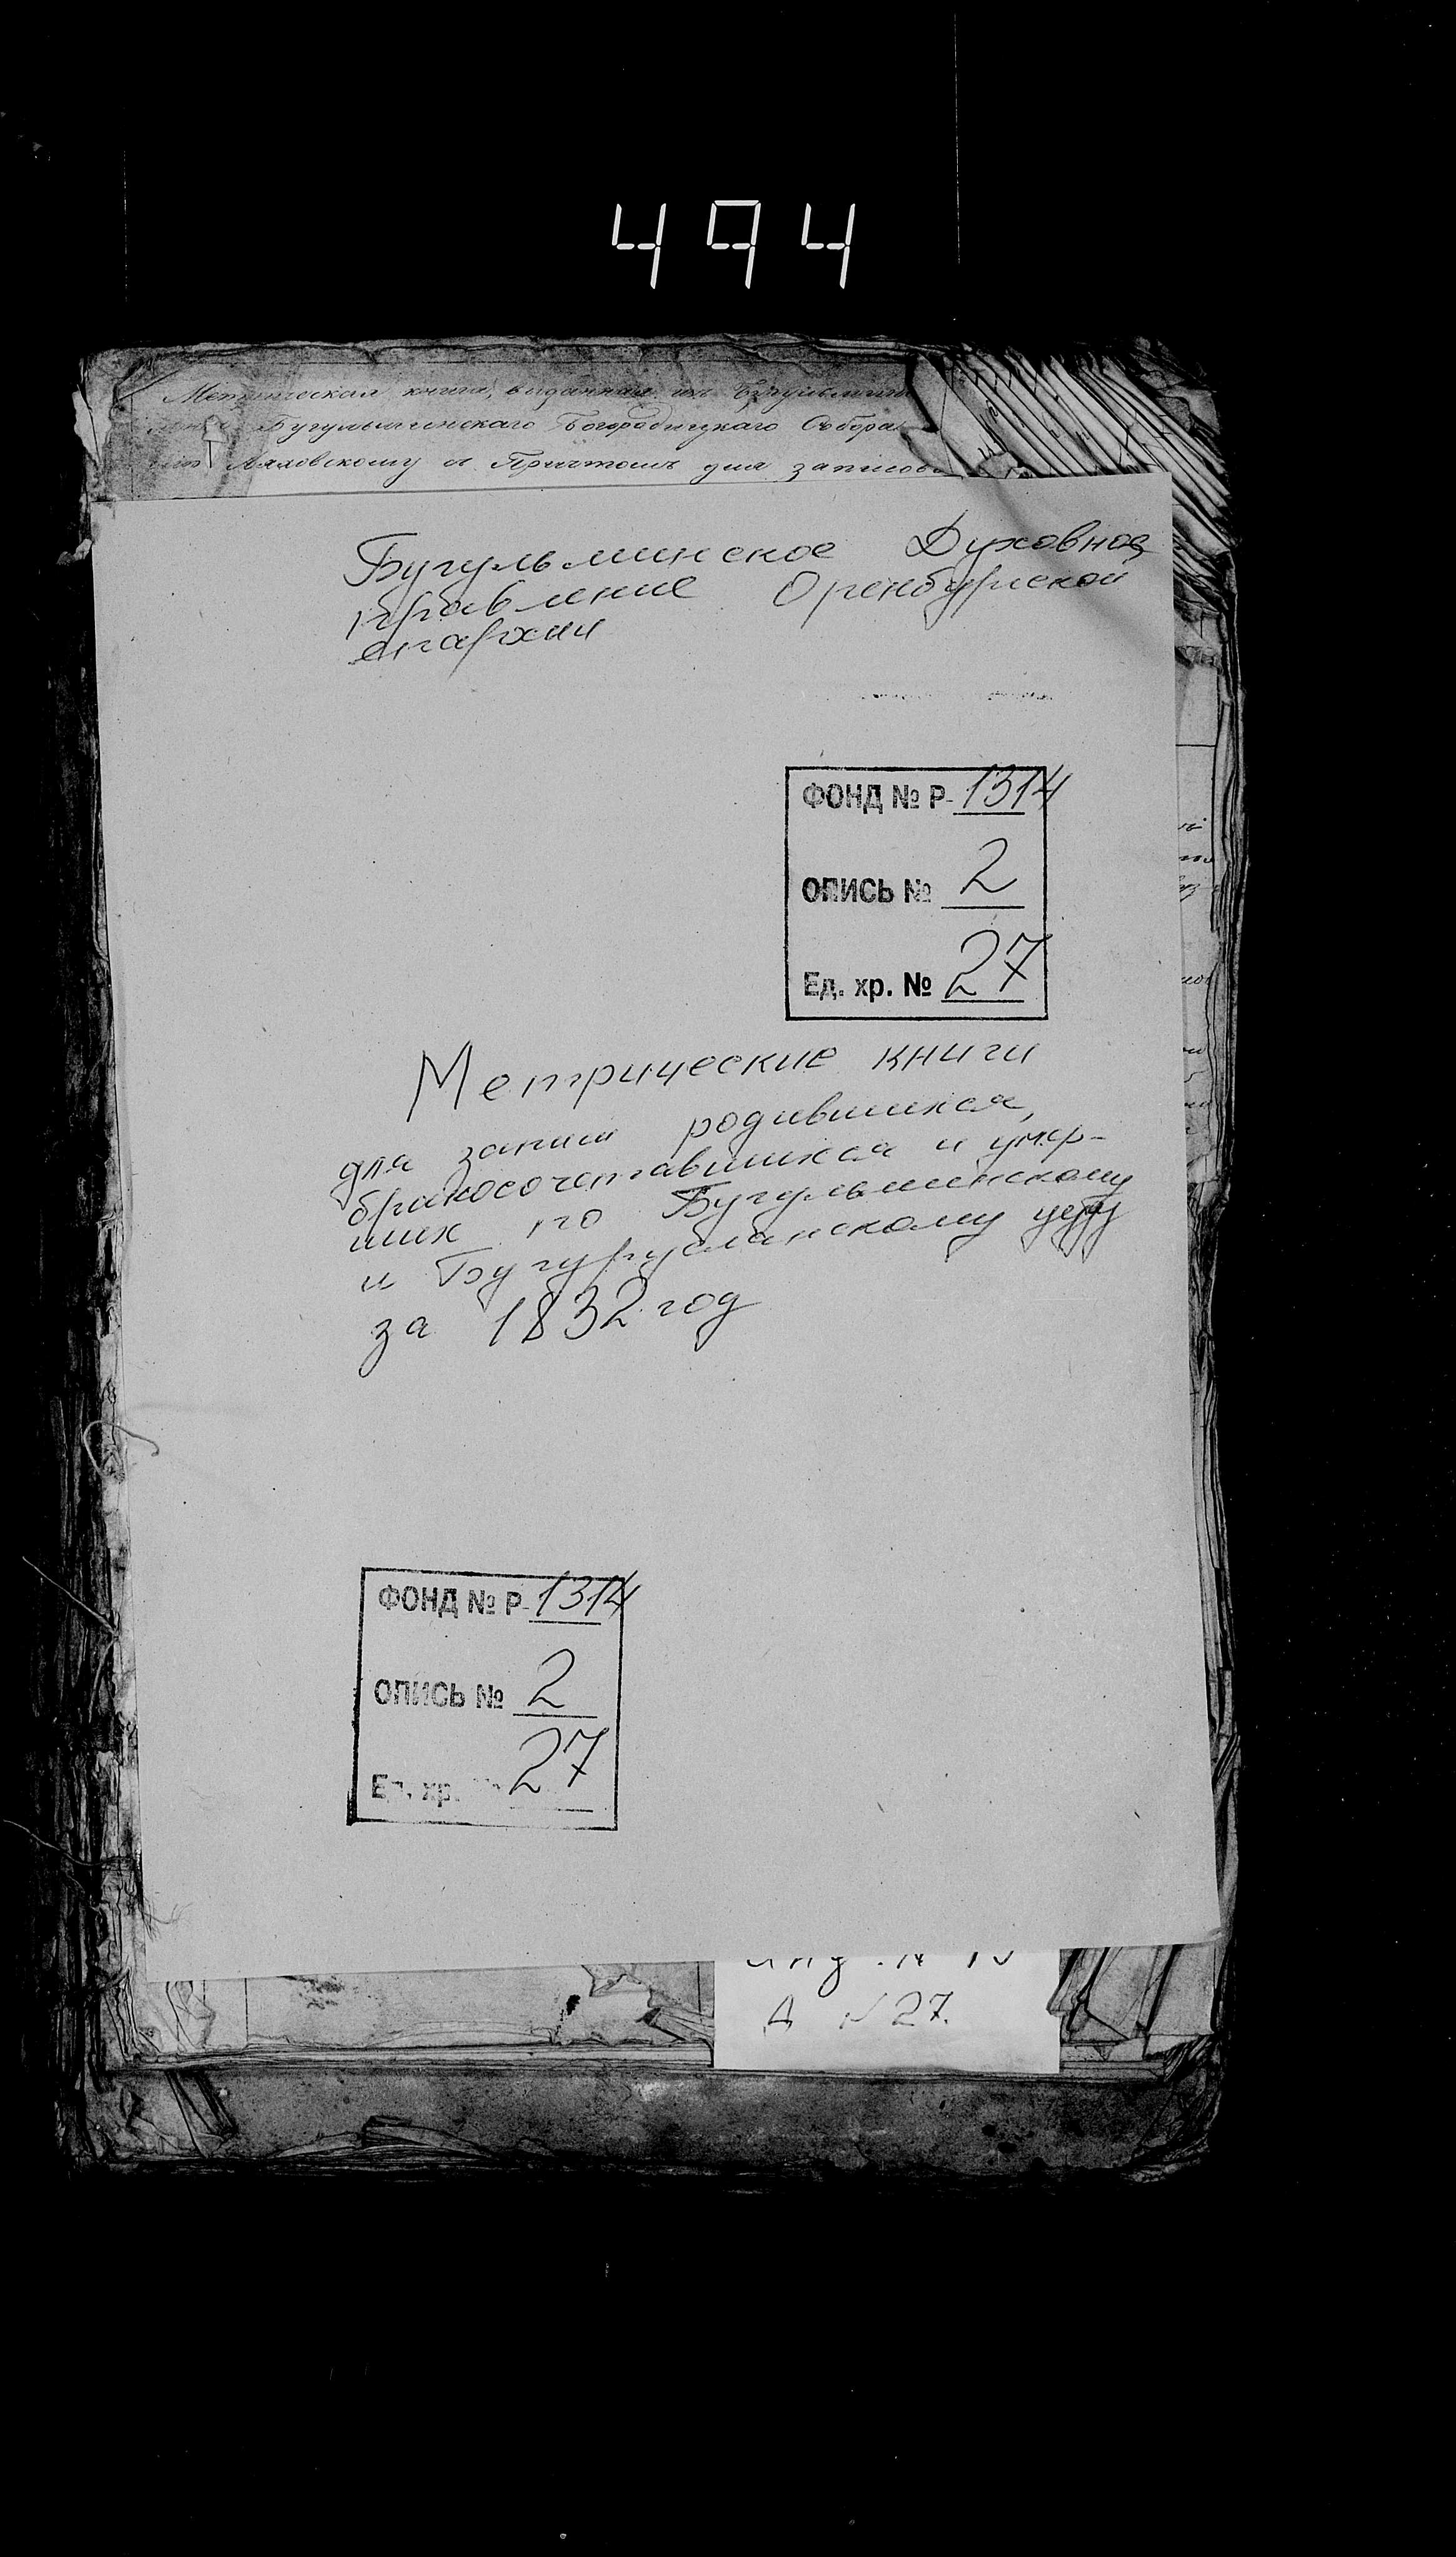 494
Метрическая книга, выданная изъ Бугульмин
Бугульминскаго Богородицкаго Собора
Ляховскому съ Причтомъ для записы
Бугульминское Духовное
правление Оренбургской
епархии
ФОНД № Р-1314
ОПИСЬ № 2
Ед. хр. № 27
Метрические книги
для записи родившихся,
бракосочетавшихся и умер-
ших по Бугульминскому
и Бугурусланскому уезду
за 1832 год
ФОНД № Р-1314
ОПИСЬ № 2
Ед. хр. № 27
Д №27.